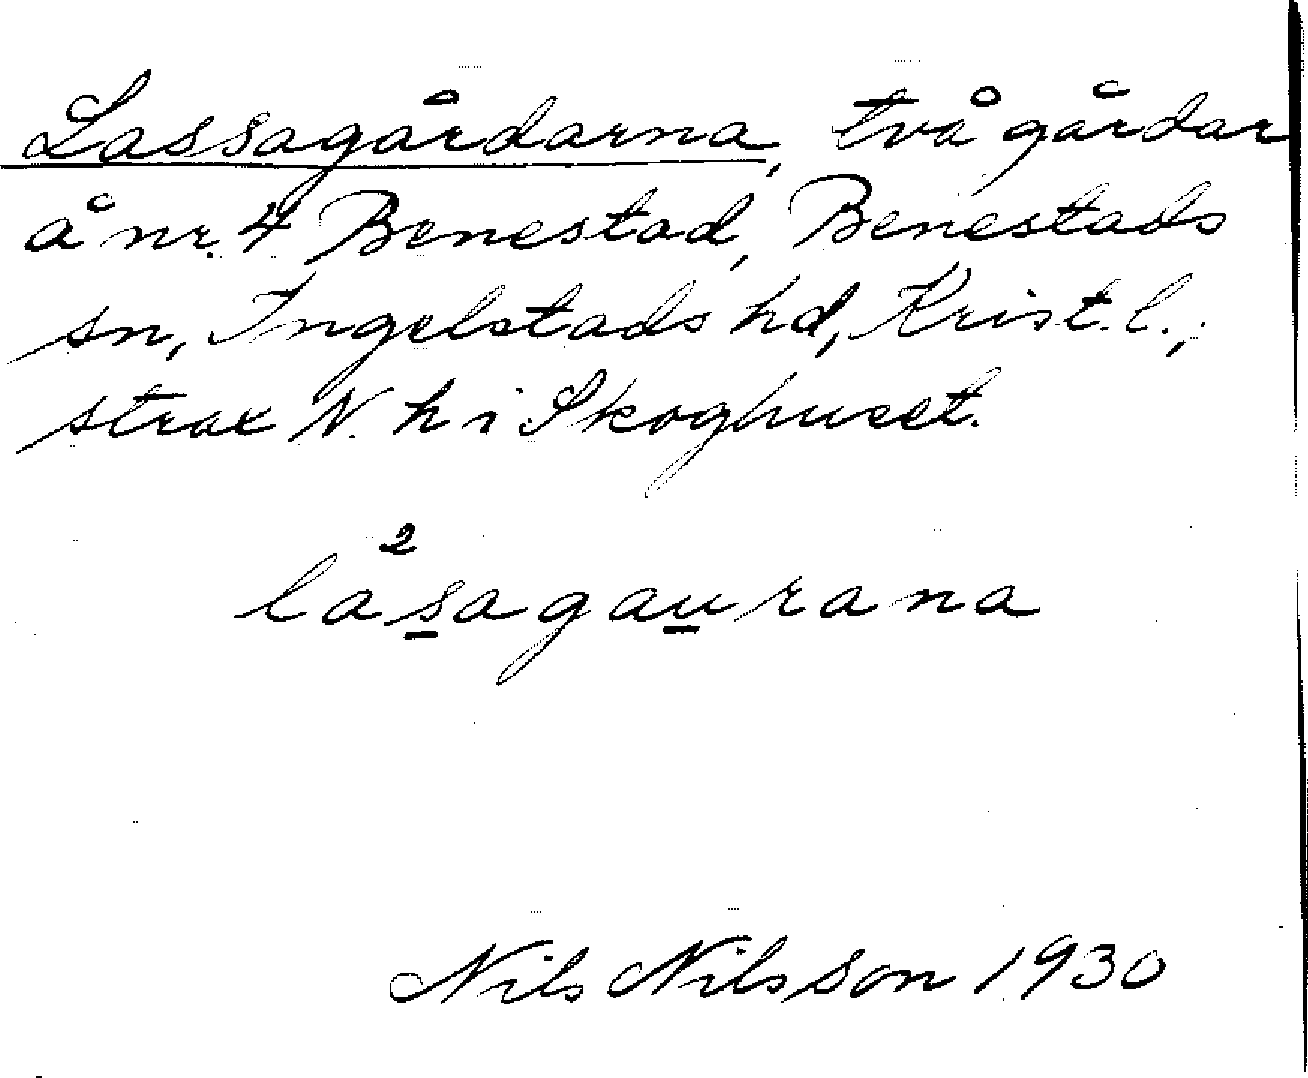 Lassagårdarna, två gårdar
å nr. 4 Benestad, Benestads
sn, Ingelstads hd, Krist. l.,
strax N. h i Skoghuset.
la²sagaurana
Nils Nilsson 1930